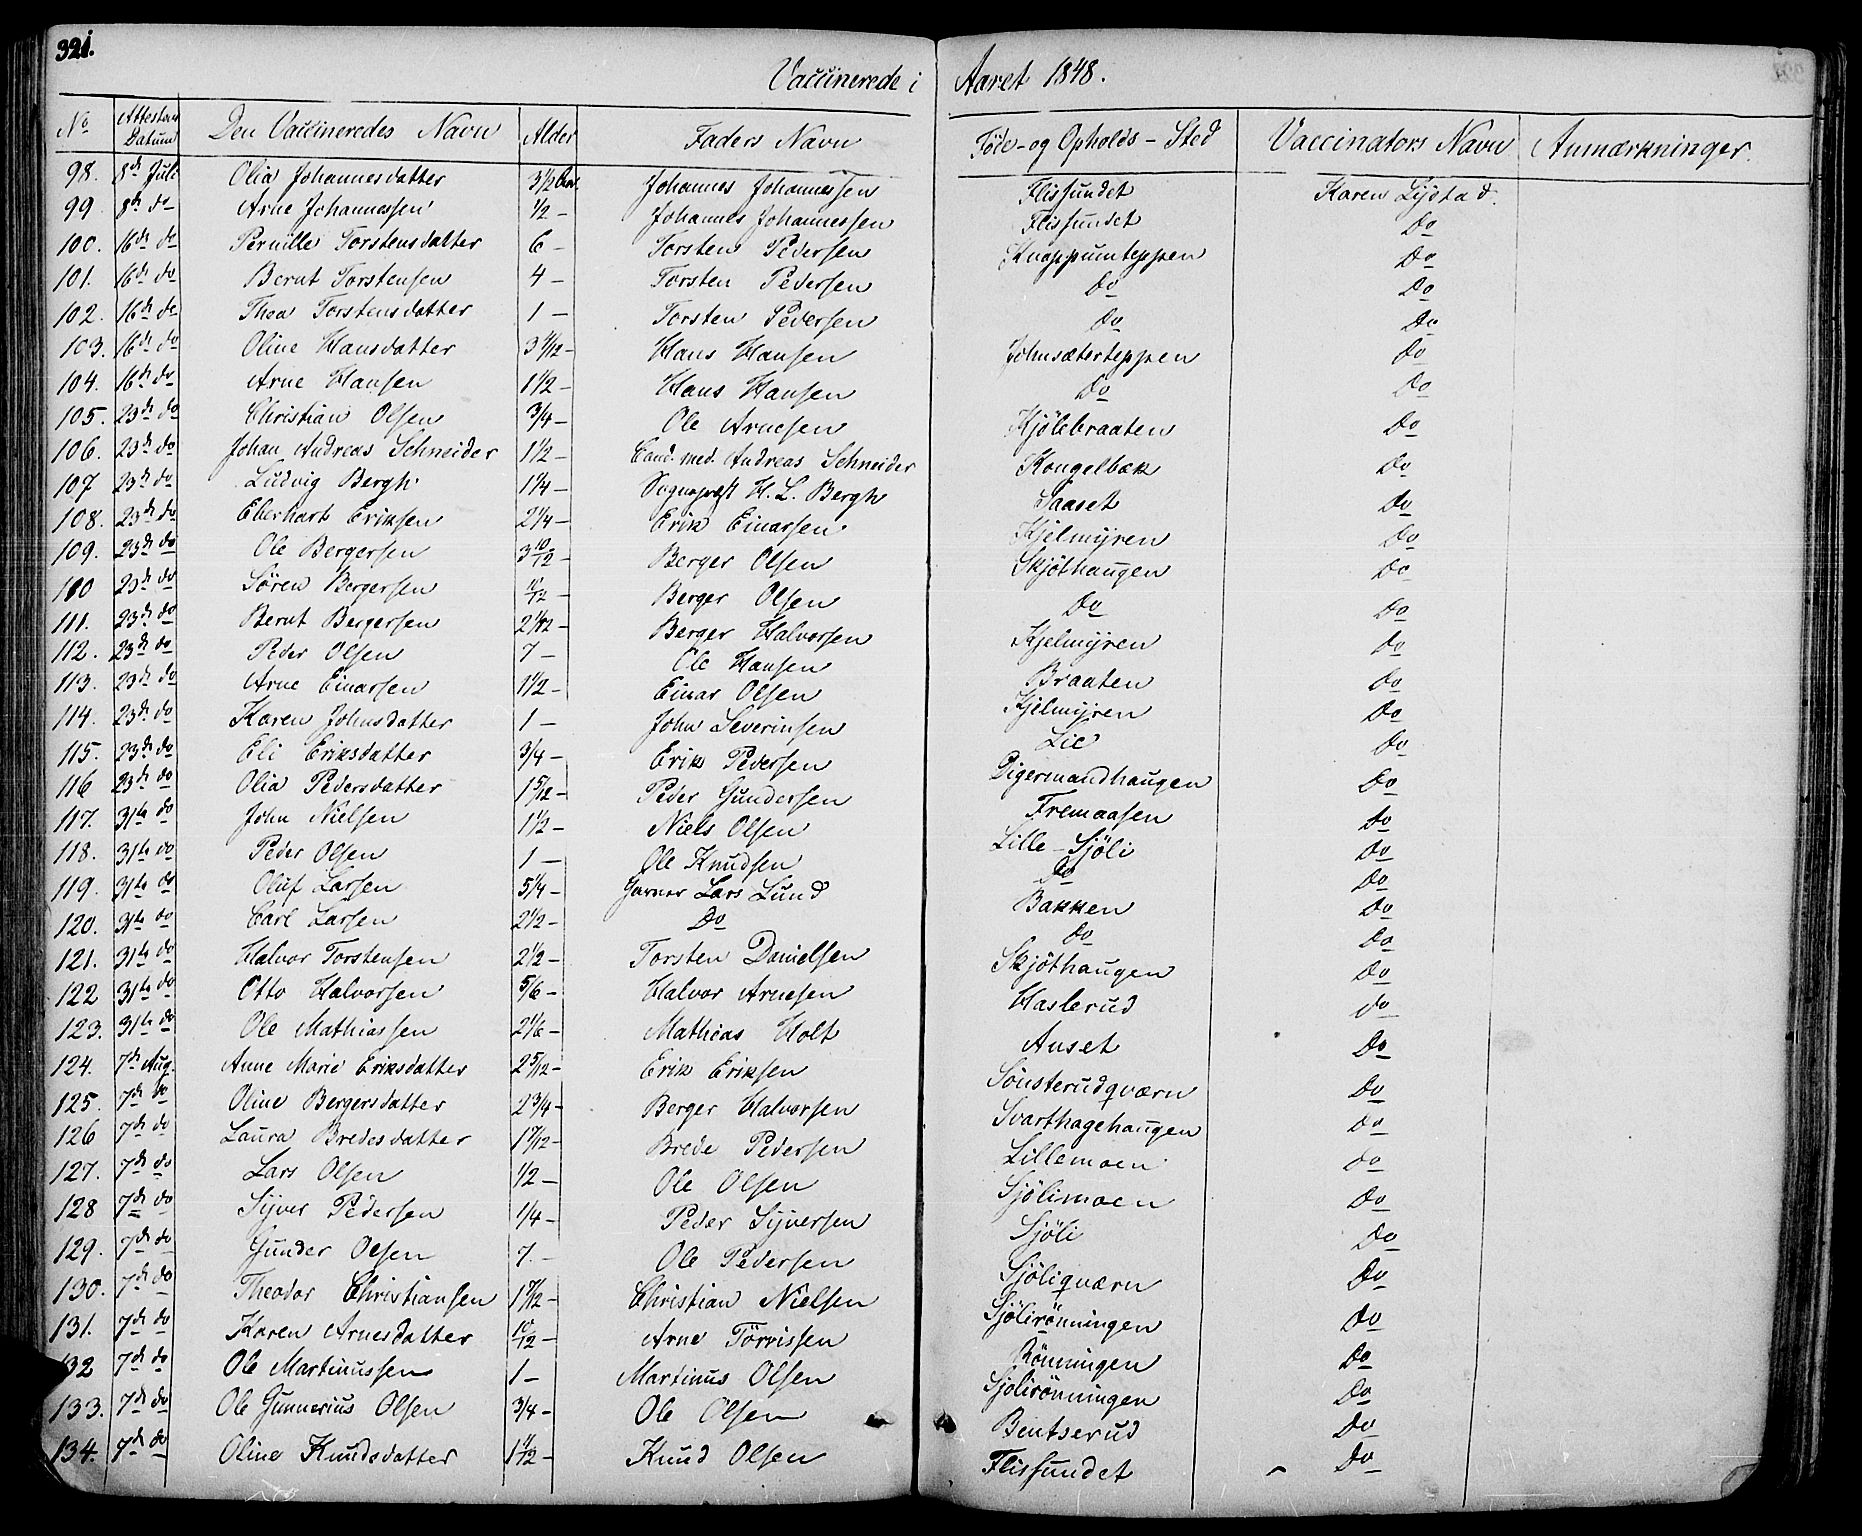 321.
Vaccinerede i Aaret 1848.
No Attestens Datum Den Vaccineredes Navn Alder Faders Navn Föde- og Opholds-Sted Vaccinators Navn Anmærkninger.
98. 8de Juli Olia Johannesdatter 3 1/2 Johannes Johannessen Flissundet Karen Lystad.
99 8de do Arne Johannessen 1/2 – Johannes Johannessen Flissundet Do
100. 16de do Pernille Torstensdatter 6 – Torsten Pedersen Knappumteppen Do
101. 16de do Bernt Torstensen 4 – Torsten Pedersen Do Do
102. 16de do Thea Torstensdatter 1 – Torsten Pedersen Do Do
103. 16de do Oline Hansdatter Hans Hansen Johnsæterteppen do
104. 16de do Arne Hansen 1 1/2 – Hans Hansen Do Do
105. 23de do Christian Olsen 3/4 – Ole Arnesen Kjölebraaten Do
106. 23de do Johan Andreas Schneider 1 1/2 – Cand. med. Andreas Schneider Kongelbæk Do
107 23de do Ludvig Bergh 1 1/4 – Sognepræst H. L. Bergh Saaset Do
108. 23de do Eberhart Eriksen 2 1/4 – Erik Einarsen Kjelmyren Do
109. 23de do Ole Bergersen 3 10/12 – Berger Olsen Skjöthaugen Do
110 23de do Sören Bergersen Berger Olsen Do Do
111. 23de do Bernt Bergersen Berger Halvorsen Kjelmyren Do
112. 23de do Peder Olsen 7 – Ole Hansen Braaten Do
113. 23de do Arne Einarsen 1 1/2 – Einar Olsen Kjelmyren Do
114. 23de do Karen Johnsdatter 1 – John Severinsen Lie Do
115. 23de do Eli Eriksdatter 3/4 – Erik Pedersen Digermandhaugen Do
116 23de do Olia Pedersdatter 1 5/12 – Peder Gundersen Fremaasen Do
117. 31te do John Nielsen 1 1/2 – Niels Olsen Lille-Sjöli Do
118. 31te do Peder Olsen 1 – Ole Knudsen Do Do
119. 31te do Oluf Larsen 5 1/4 – Garver Lars Lund Bakken Do
120. 31te do Carl Larsen 2 1/2 – Do do Do
121. 31te do Halvor Torstensen 2 1/2 – Torsten Danielsen Skjöthaugen Do
122 31te do Otto Halvorsen 5/6 – Halvor Arnesen Haslerud do
123. 31te do Ole Mathiassen 2 1/6 – Mathias Holt Anset Do
124. 7de Aug. Anne Marie Eriksdatter 2 5/12 – Erik Eriksen Sönsterudqværn Do
125. 7de do Oline Bergersdatter 2 3/4 – Berger Halvorsen Svarthagehaugen Do
126 7de do Laura Bredesdatter 1 7/12 – Brede Pedersen Lillemoen do
127. 7de do Lars Olsen 1/2 – Ole Olsen Sjölimoen Do
128 7de do Syver Pedersen 1/4 – Peder Syversen Sjöli Do
129. 7de do Gunder Olsen 7. – Ole Pedersen Sjöliqværn Do
130. 7de do Theodor Christiansen 1 7/12 – Christian Nielsen Sjölirönningen Do
131. 7de do Karen Arnesdatter 10/12 – Arne Törrissen Rönningen Do
132 7de do Ole Martinussen 1 – Martinus Olsen Sjolirönningen Do
133. 7de do Ole Gunnerius Olsen 3/4 – Ole Olsen Bentserud Do
134. 7de do Oline Knudsdatter 1 11/12 – Knud Olsen Flissundet Do